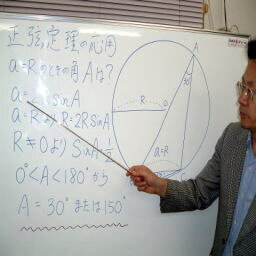 正弦定理の応用
a=Rのときの角Aは?
a=2RsinA
a=Rより R=2RsinA
R≠0より sinA=1/2
0°<A<180°から
A=30°または150°
A
30°
R
O
a=R
C